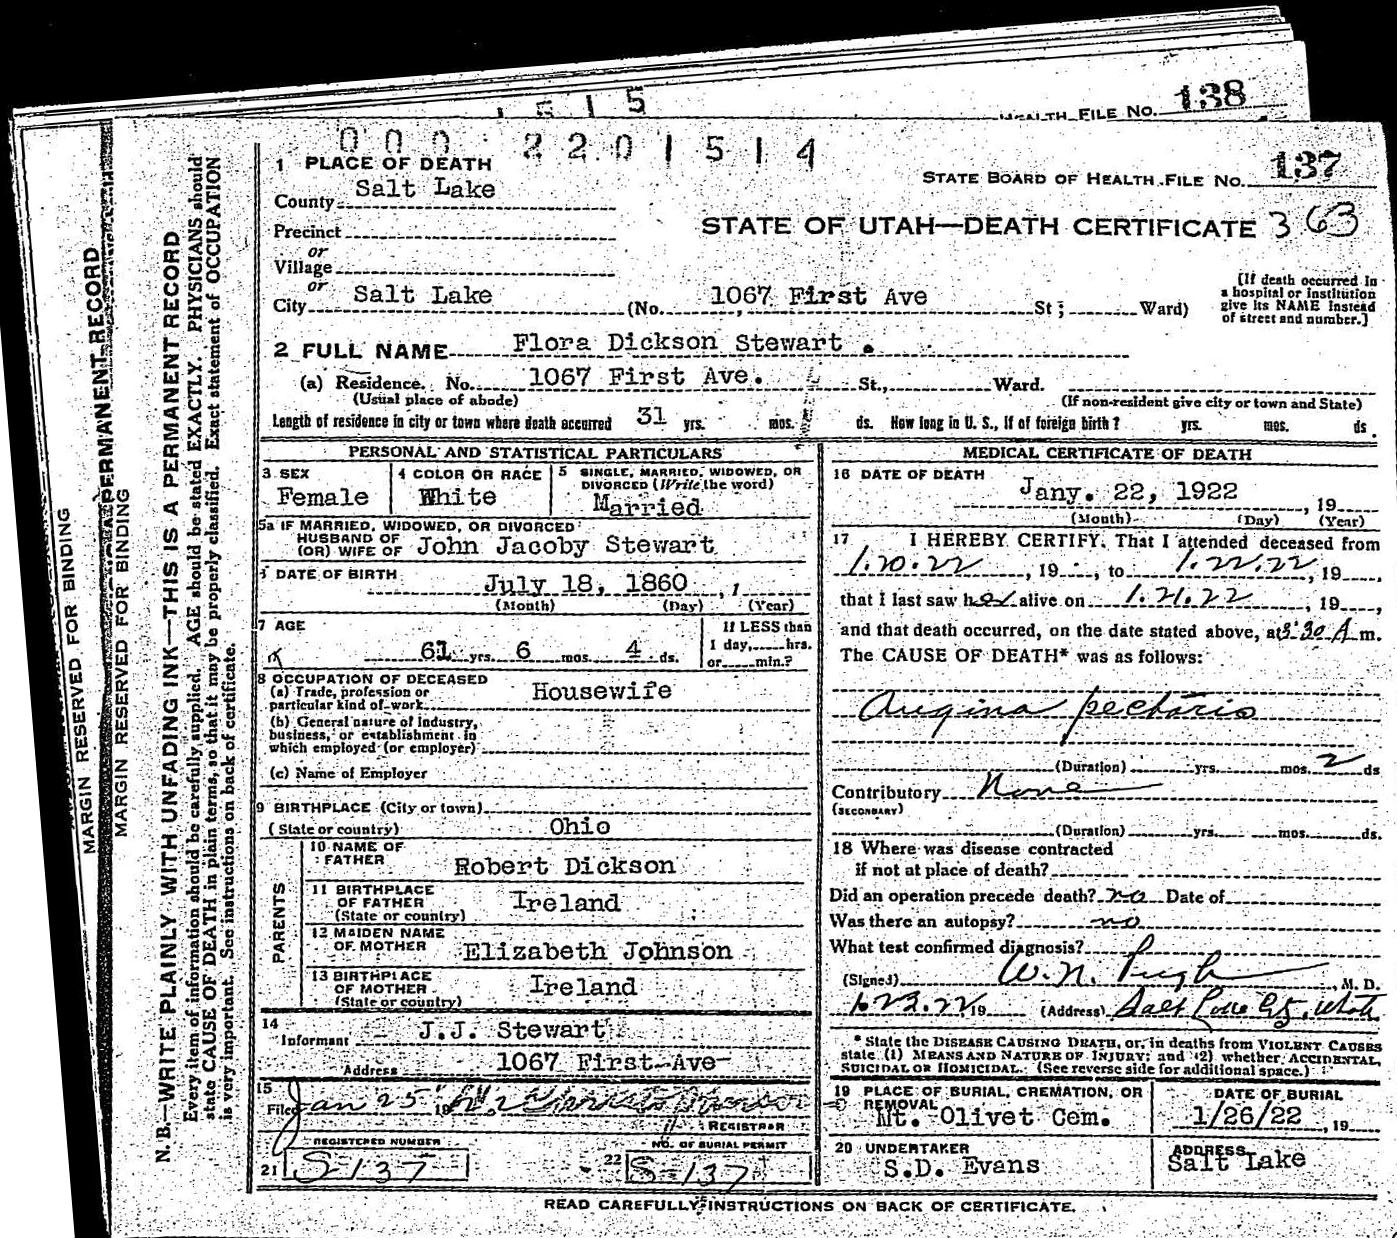 1515
HEALTH FILE NO. 138
000 2201514
1 PLACE OF DEATH
STATE BOARD OF HEALTH FILE NO. 137
County Salt Lake
STATE OF UTAH—DEATH CERTIFICATE 363
Precinct
or
Village
or
City Salt Lake (No. 1067 First Ave St; Ward)
[If death occurred in
a hospital or institution
give its NAME instead
of street and number.]
2 FULL NAME Flora Dickson Stewart .
(a) Residence. No. 1067 First Ave. St., Ward.
(Usual place of abode) (If non-resident give city or town and State)
Length of residence in city or town where death occurred 31 yrs. mos. ds. How long in U. S., if of foreign birth? yrs. mos. ds.
PERSONAL AND STATISTICAL PARTICULARS
3 SEX
Female
4 COLOR OR RACE
White
5 SINGLE, MARRIED, WIDOWED, OR
DIVORCED (Write the word)
Married
5a IF MARRIED, WIDOWED, OR DIVORCED
HUSBAND OF
(OR) WIFE OF John Jacoby Stewart
DATE OF BIRTH
July 18, 1860 , 1
(Month) (Day) (Year)
7 AGE
61 yrs. 6 mos. 4 ds.
If LESS than
1 day, hrs.
or min.?
8 OCCUPATION OF DECEASED
(a) Trade, profession or
particular kind of work Housewife
(b) General nature of industry,
business, or establishment in
which employed (or employer)
(c) Name of Employer
9 BIRTHPLACE (City or town)
(State or country) Ohio
PARENTS
10 NAME OF
FATHER Robert Dickson
11 BIRTHPLACE
OF FATHER
(State or country) Ireland
12 MAIDEN NAME
OF MOTHER Elizabeth Johnson
13 BIRTHPLACE
OF MOTHER
(State or country) Ireland
14
Informant J.J. Stewart
Address 1067 First Ave
15
Filed Jan 25 19
REGISTRAR
REGISTERED NUMBER
21 S-137
NO. OF BURIAL PERMIT
22 S-137
MEDICAL CERTIFICATE OF DEATH
16 DATE OF DEATH
Jany. 22, 1922 , 19
(Month) (Day) (Year)
17 I HEREBY CERTIFY, That I attended deceased from
1.20.22 , 19 , to 1.22.22 , 19 ,
that I last saw her alive on 1.21.22 , 19 ,
and that death occurred, on the date stated above, at 3:30 A m.
The CAUSE OF DEATH* was as follows:
Angina pectoris
(Duration) yrs. mos. 2 ds
Contributory None
(SECONDARY)
(Duration) yrs. mos. ds.
18 Where was disease contracted
if not at place of death?
Did an operation precede death? no Date of
Was there an autopsy? no
What test confirmed diagnosis?
(Signed) W. N. Pugh , M. D.
1.23.22 19 (Address) Salt Lake City, Utah
* State the DISEASE CAUSING DEATH, or, in deaths from VIOLENT CAUSES
state (1) MEANS AND NATURE OF INJURY; and (2) whether ACCIDENTAL,
SUICIDAL OR HOMICIDAL. (See reverse side for additional space.)
19 PLACE OF BURIAL, CREMATION, OR
REMOVAL
Mt. Olivet Cem.
DATE OF BURIAL
1/26/22 , 19
20 UNDERTAKER
S.D. Evans
ADDRESS
Salt Lake
READ CAREFULLY INSTRUCTIONS ON BACK OF CERTIFICATE.
MARGIN RESERVED FOR BINDING
PERMANENT RECORD
MARGIN RESERVED FOR BINDING
N. B.—WRITE PLAINLY WITH UNFADING INK—THIS IS A PERMANENT RECORD
Every item of information should be carefully supplied. AGE should be stated EXACTLY. PHYSICIANS should
state CAUSE OF DEATH in plain terms, so that it may be properly classified. Exact statement of OCCUPATION
is very important. See instructions on back of certificate.